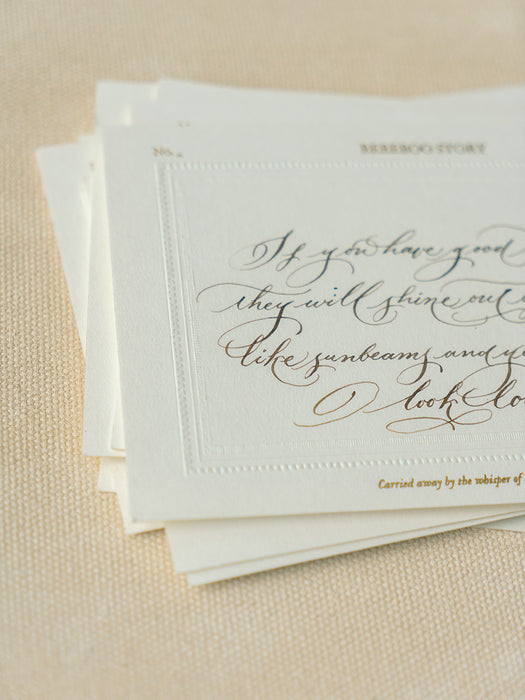 No.
BEREBOO STORY
If you have good
they will shine out
like sunbeams and
look
Carried away by the whisper of